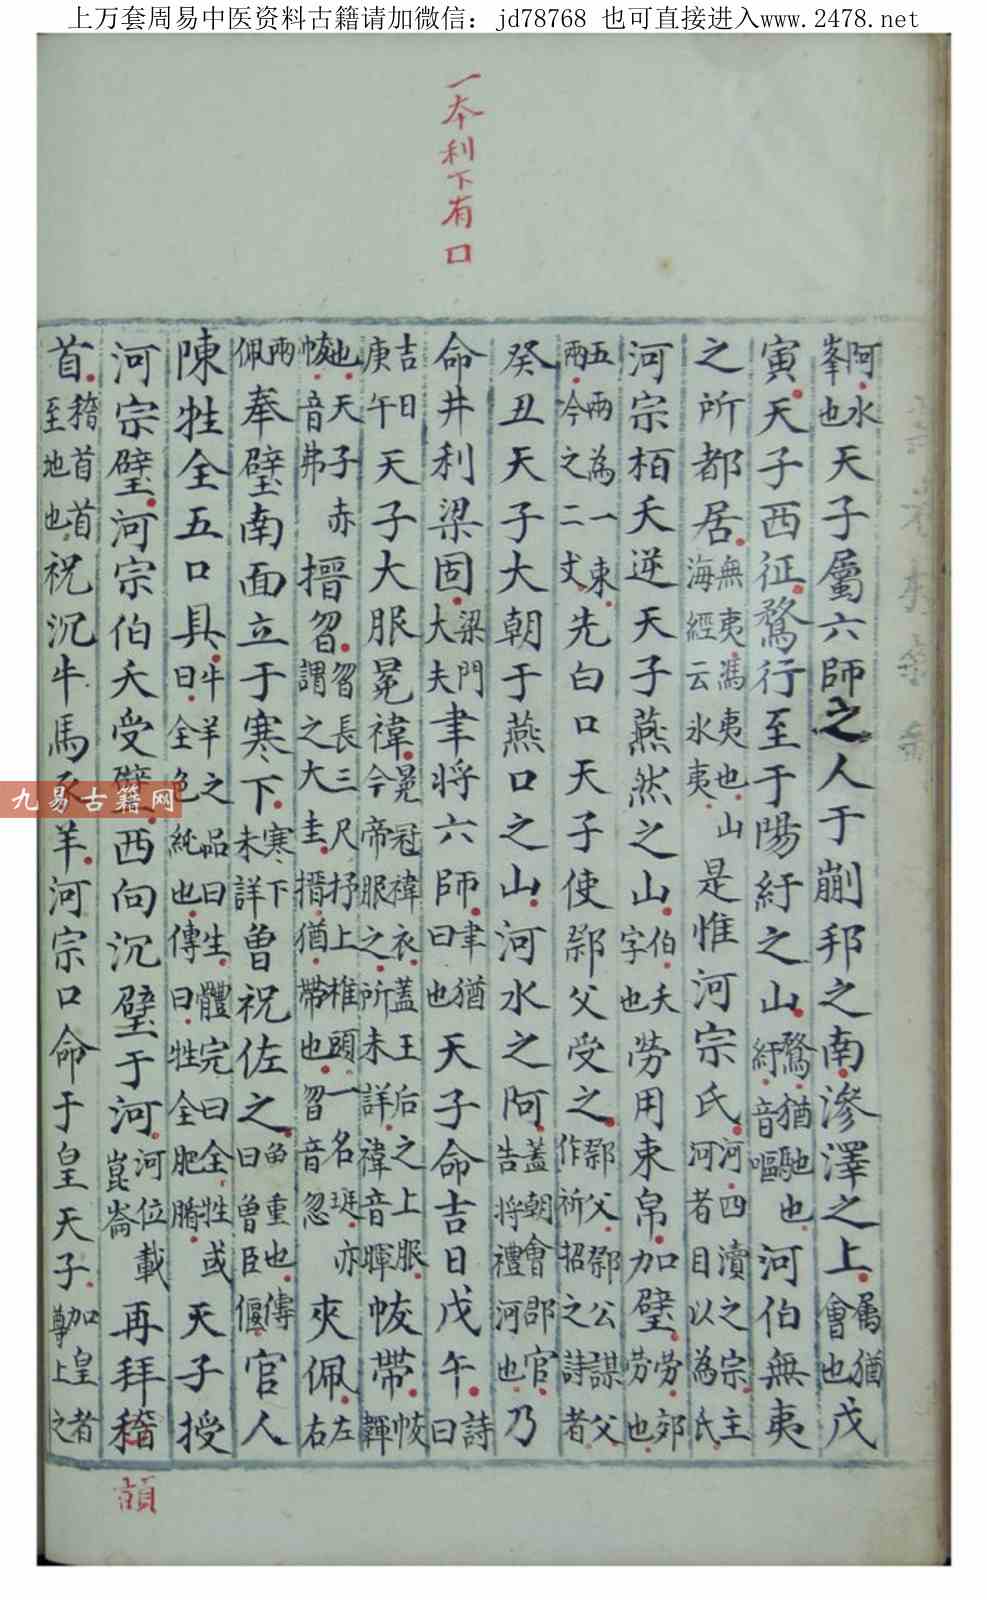 上万套周易中医资料古籍请加微信：jd78768 也可直接进入www.2478.net
一本利下有口
阿水峯也天子屬六師之人于𨛬邦之南滲澤之上屬猶會也戊
寅天子西征騖行至于陽紆之山騖猶馳也紆音嘔河伯無夷
之所都居無夷馮夷也山海經云冰夷是惟河宗氏河四瀆之宗主河者因以為氏
河宗栢夭逆天子燕然之山伯夭字也勞用束帛加璧勞郊勞也
五兩為一束兩今之二丈先白口天子使鄒父受之鄒父鄒公謀父作祈招之詩者
癸丑天子大朝于燕口之山河水之阿蓋朝會郡官告將禮河也乃
命井利梁固梁門大夫聿將六師聿猶曰也天子命吉日戊午詩曰
吉日庚午天子大服冕褘冕冠褘衣蓋王后之上服今帝服之所未詳褘音暉帗帶帗韠
也天子赤帗音弗搢曶曶長三尺抒上椎頭一名珽亦謂之大圭搢猶帶也曶音忽夾佩左右
兩佩奉璧南面立于寒下寒下未詳曾祝佐之曾重也傳曰曾臣偃官人
陳牲全五口具牛羊之品曰生體完曰全牲或曰全色純也傳曰牲全肥腯天子授
河宗璧河宗伯夭受璧西向沉璧于河河位載崑崙再拜稽
首稽首首至地也祝沉牛馬豕羊河宗口命于皇天子加皇者尊上之
頡
九易古籍网